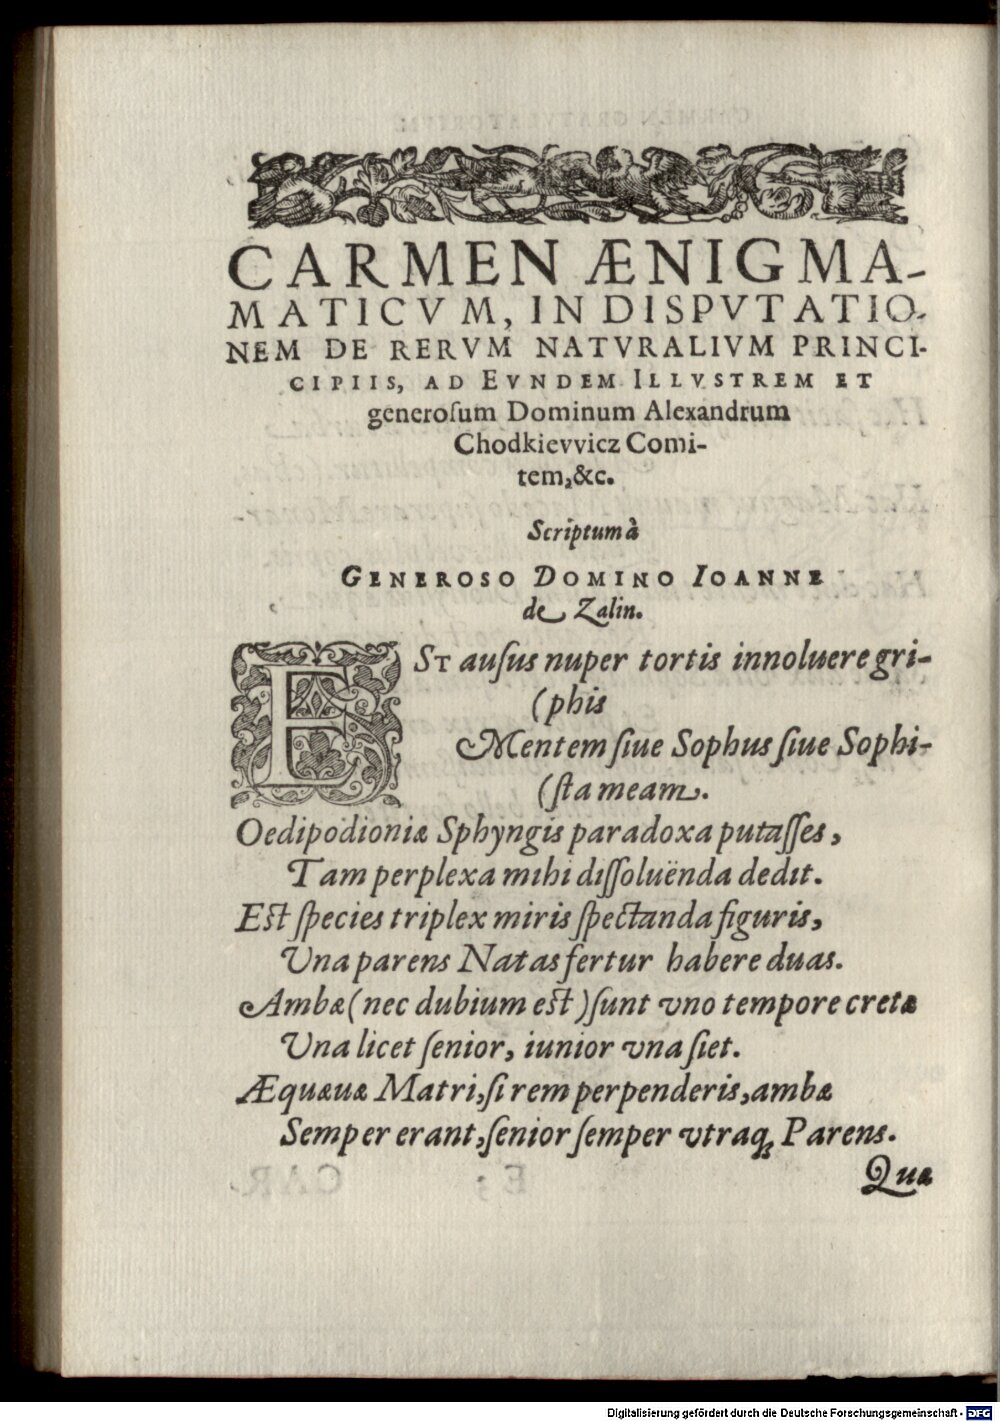 CARMEN ÆNIGMA-
MATICVM, IN DISPVTATIO-
NEM DE RERVM NATVRALIVM PRINCI-
CIPIIS, AD EVNDEM ILLVSTREM ET
generoſum Dominum Alexandrum
Chodkievvicz Comi-
tem, &c.
Scriptum à
GENEROSO DOMINO IOANNE
de Zalin.
EST auſus nuper tortis innoluere gri-
(phis
Mentem ſiue Sophus ſiue Sophi-
(ſta meam.
Oedipodioniæ Sphyngis paradoxa putaſſes,
Tam perplexa mihi diſſoluënda dedit.
Eſt ſpecies triplex miris ſpectanda figuris,
Una parens Natas fertur habere duas.
Ambæ (nec dubium eſt) ſunt vno tempore cretæ
Una licet ſenior, iunior vna ſiet.
Æquæuæ Matri, ſi rem perpenderis, ambæ
Semper erant, ſenior ſemper vtraq; Parens.
Quæ
Digitalisierung gefördert durch die Deutsche Forschungsgemeinschaft - DFG